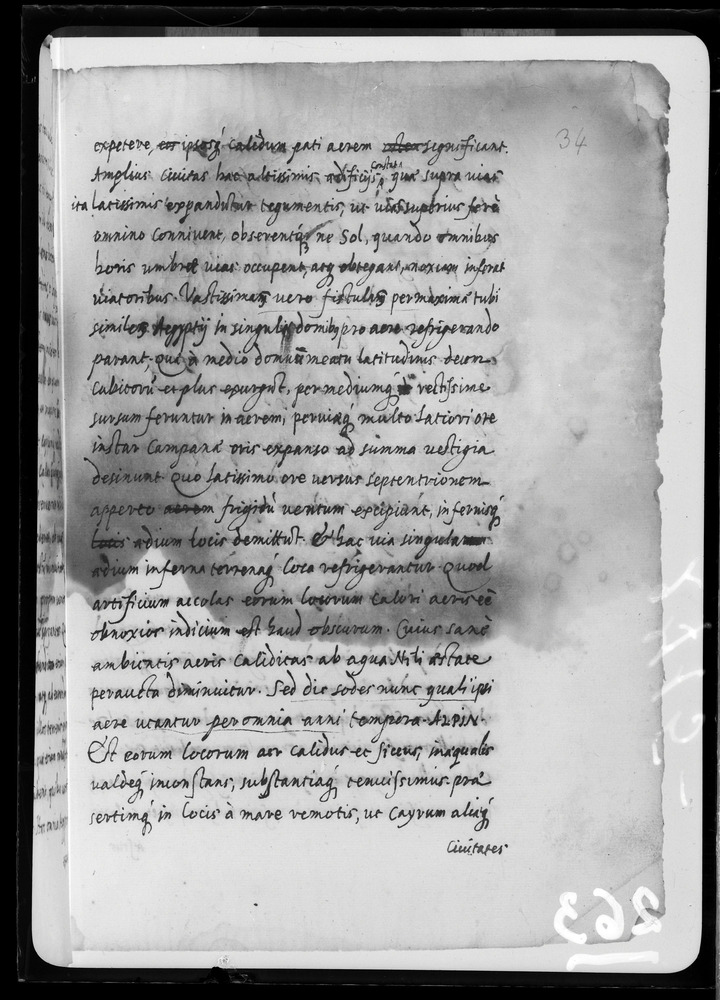 34
expetere, eos ipsosq́ calidum pati aerem significant.
Amplius civitas hac altissimis ædificijs constata, quæ supra vias
ita latissimis expanduntur tegumentis, ut vias superius ferè
omnino conniveut, obserenturq́ ne Sol, quando omnibus
horis umbræ vias occupent, atq́ obtegant, noxiam inferat
viatoribus. Vastissimas vero fistulas permaximæ tubi
similes Aegyptij in singulis domibus pro aere refrigerando
parant, quæ à medio domuum meatu latitudinis decem
cubitorũ et plus exurgũt, per mediumq́ rectissime
sursum feruntur in aerem, perviaq́ multo latiori ore
instar Campanæ oris expanso ad summa vestigia
desinunt. Quo latissimo ore versus septentrionem
apperto aerem frigidũ ventum excipiunt, infernisq́
locis ædium locis demittũt. Et hac via singularum
ædium inferna terrenaq́ loca refrigerantur. Quod
artificium accolas eorum locorum calori aeris eẽ
obnoxios indicium est haud obscurum. Cuius sanè
ambientis aeris caliditas ab aqua Nili æstate
peraucta diminuitur. Sed dic sodes nunc quali ipsi
aere utantur per omnia anni tempora. ALPIN.
Est eorum locorum aer calidus et siccus, inæqualis
valdeq́ inconstans, substantiaq́ tenuissimus præ
sertimq́ in locis à mare remotis, ut Cayrum aliaq́
Civitates
263